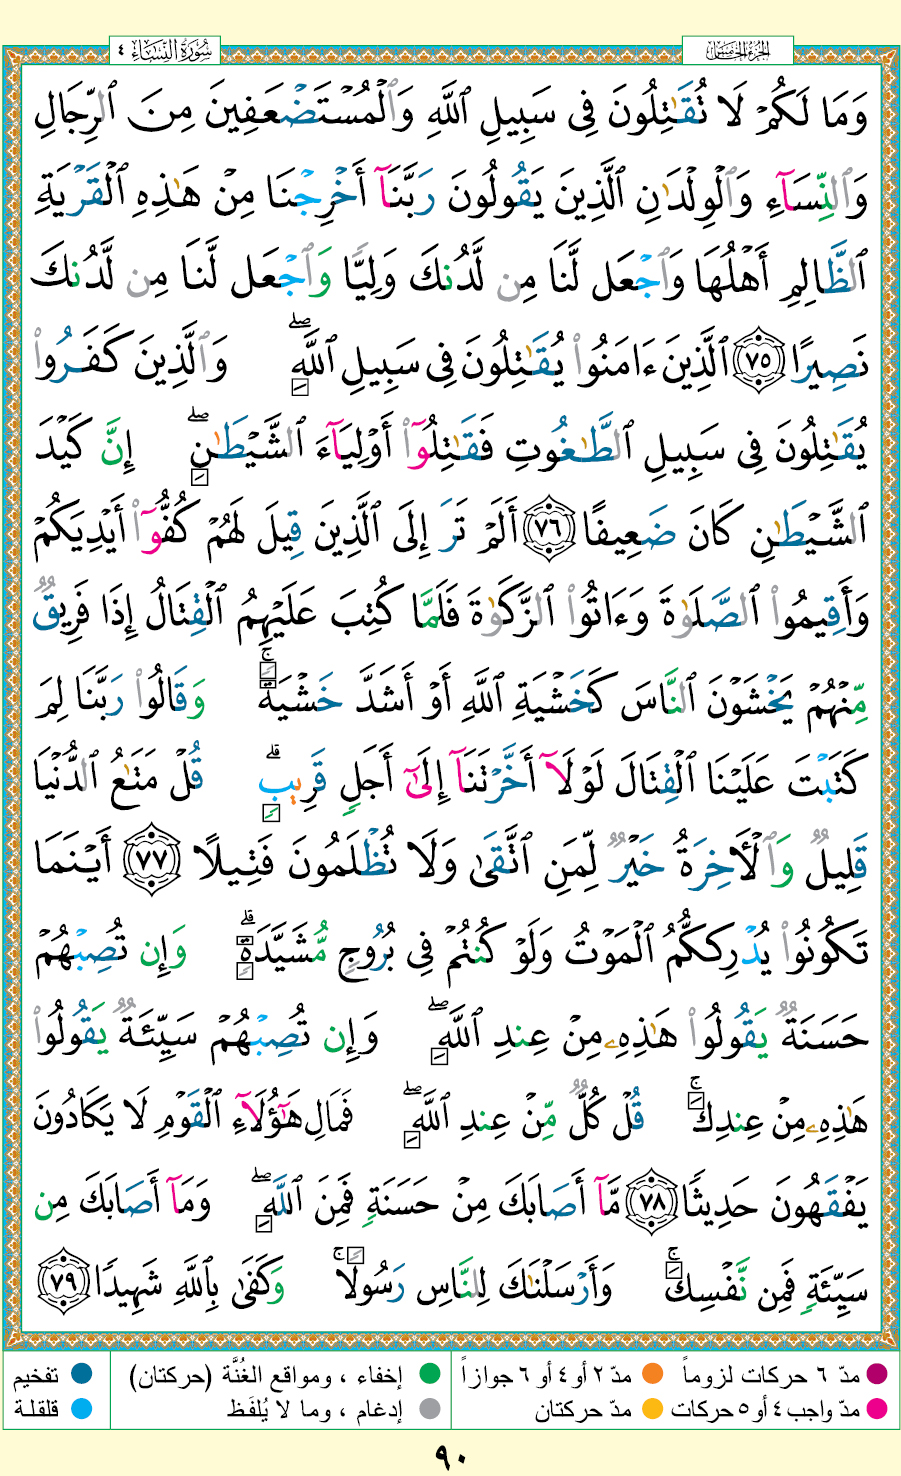 سُورَةُ النِّسَاءِ ٤
الجزء الخامس
وَمَا لَكُمْ لَا تُقَٰتِلُونَ فِى سَبِيلِ ٱللَّهِ وَٱلْمُسْتَضْعَفِينَ مِنَ ٱلرِّجَالِ
وَٱلنِّسَآءِ وَٱلْوِلْدَٰنِ ٱلَّذِينَ يَقُولُونَ رَبَّنَآ أَخْرِجْنَا مِنْ هَٰذِهِ ٱلْقَرْيَةِ
ٱلظَّالِمِ أَهْلُهَا وَٱجْعَل لَّنَا مِن لَّدُنكَ وَلِيًّا وَٱجْعَل لَّنَا مِن لَّدُنكَ
نَصِيرًا ٧٥ ٱلَّذِينَ ءَامَنُوا۟ يُقَٰتِلُونَ فِى سَبِيلِ ٱللَّهِ ۖ وَٱلَّذِينَ كَفَرُوا۟
يُقَٰتِلُونَ فِى سَبِيلِ ٱلطَّٰغُوتِ فَقَٰتِلُوٓا۟ أَوْلِيَآءَ ٱلشَّيْطَٰنِ ۖ إِنَّ كَيْدَ
ٱلشَّيْطَٰنِ كَانَ ضَعِيفًا ٧٦ أَلَمْ تَرَ إِلَى ٱلَّذِينَ قِيلَ لَهُمْ كُفُّوٓا۟ أَيْدِيَكُمْ
وَأَقِيمُوا۟ ٱلصَّلَوٰةَ وَءَاتُوا۟ ٱلزَّكَوٰةَ فَلَمَّا كُتِبَ عَلَيْهِمُ ٱلْقِتَالُ إِذَا فَرِيقٌ
مِّنْهُمْ يَخْشَوْنَ ٱلنَّاسَ كَخَشْيَةِ ٱللَّهِ أَوْ أَشَدَّ خَشْيَةً ۚ وَقَالُوا۟ رَبَّنَا لِمَ
كَتَبْتَ عَلَيْنَا ٱلْقِتَالَ لَوْلَآ أَخَّرْتَنَآ إِلَىٰٓ أَجَلٍ قَرِيبٍ ۗ قُلْ مَتَٰعُ ٱلدُّنْيَا
قَلِيلٌ وَٱلْـَٔاخِرَةُ خَيْرٌ لِّمَنِ ٱتَّقَىٰ وَلَا تُظْلَمُونَ فَتِيلًا ٧٧ أَيْنَمَا
تَكُونُوا۟ يُدْرِككُّمُ ٱلْمَوْتُ وَلَوْ كُنتُمْ فِى بُرُوجٍ مُّشَيَّدَةٍ ۗ وَإِن تُصِبْهُمْ
حَسَنَةٌ يَقُولُوا۟ هَٰذِهِۦ مِنْ عِندِ ٱللَّهِ ۖ وَإِن تُصِبْهُمْ سَيِّئَةٌ يَقُولُوا۟
هَٰذِهِۦ مِنْ عِندِكَ ۚ قُلْ كُلٌّ مِّنْ عِندِ ٱللَّهِ ۖ فَمَالِ هَٰٓؤُلَآءِ ٱلْقَوْمِ لَا يَكَادُونَ
يَفْقَهُونَ حَدِيثًا ٧٨ مَّآ أَصَابَكَ مِنْ حَسَنَةٍ فَمِنَ ٱللَّهِ ۖ وَمَآ أَصَابَكَ مِن
سَيِّئَةٍ فَمِن نَّفْسِكَ ۚ وَأَرْسَلْنَٰكَ لِلنَّاسِ رَسُولًا ۚ وَكَفَىٰ بِٱللَّهِ شَهِيدًا ٧٩
مدّ ٦ حركات لزوماً مدّ ٢ أو ٤ أو ٦ جوازاً إخفاء ، ومواقع الغُنَّة (حركتان) تفخيم
مدّ واجب ٤ أو ٥ حركات مدّ حركتان إدغام ، وما لا يُلفَظ قلقلة
٩٠